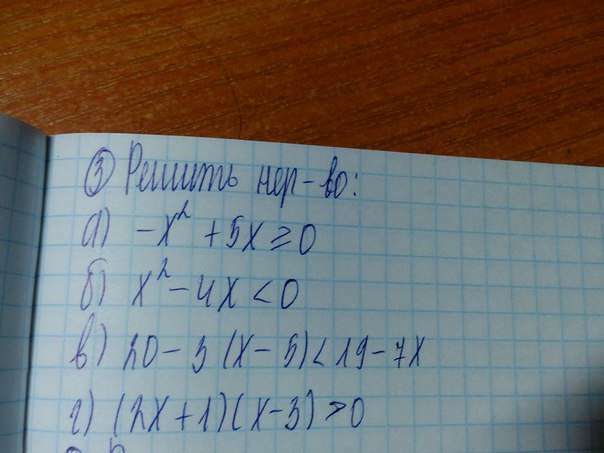 ③ Решить нер-во:
а) -x² + 5x ≥ 0
б) x² - 4x < 0
в) 20 - 3(x - 5) < 19 - 7x
г) (2x + 1)(x - 3) > 0